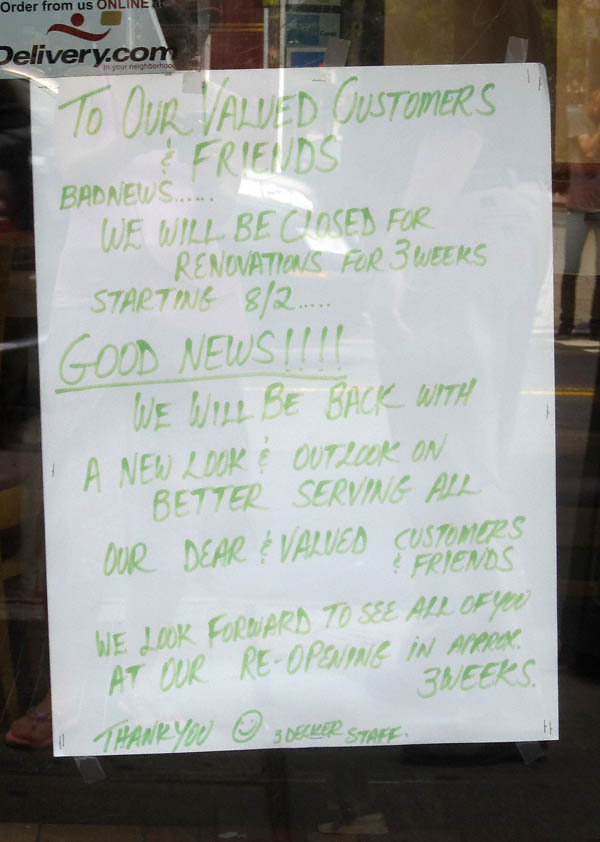 Order from us ONLINE at
Delivery.com
in your neighborhood
TO OUR VALUED CUSTOMERS
& FRIENDS
BADNEWS.....
WE WILL BE CLOSED FOR
RENOVATIONS FOR 3 WEEKS
STARTING 8/2.....
GOOD NEWS!!!!
WE WILL BE BACK WITH
A NEW LOOK & OUTLOOK ON
BETTER SERVING ALL
OUR DEAR & VALUED CUSTOMERS
& FRIENDS
WE LOOK FORWARD TO SEE ALL OF YOU
AT OUR RE-OPENING IN APPROX.
3 WEEKS.
THANK YOU ☺ 3 DECKER STAFF.